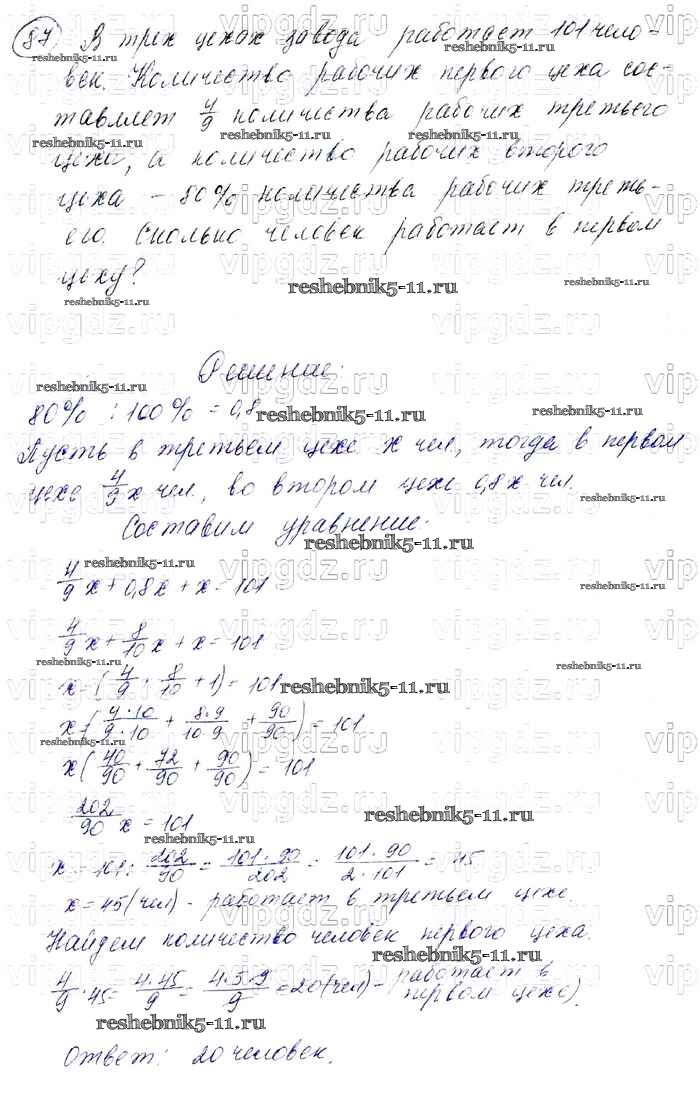 87 В трех цехах завода работает 101 чело-
век. Количество рабочих первого цеха сос-
тавляет 4/9 количества рабочих третьего
цеха, а количество рабочих второго
цеха – 80% количества рабочих треть-
его. Сколько человек работает в первом
цеху?
Решение:
80% : 100% = 0,8
Пусть в третьем цехе x чел, тогда в первом
цехе 4/9 x чел., во втором цехе 0,8x чел.
Составим уравнение:
4/9 x + 0,8x + x = 101
4/9 x + 8/10 x + x = 101
x = (4/9 + 8/10 + 1) = 101
x = (4·10/9·10 + 8·9/10·9 + 90/90) = 101
x (40/90 + 72/90 + 90/90) = 101
202/90 x = 101
x = 101 : 202/90 = 101·90/202 = 101·90/2·101 = 45
x = 45 (чел) - работает в третьем цехе.
Найдем количество человек первого цеха.
4/9 · 45 = 4·45/9 = 4·5·9/9 = 20 (чел) - (работает в
первом цехе)
Ответ: 20 человек.
reshebnik5-11.ru
vipgdz.ru